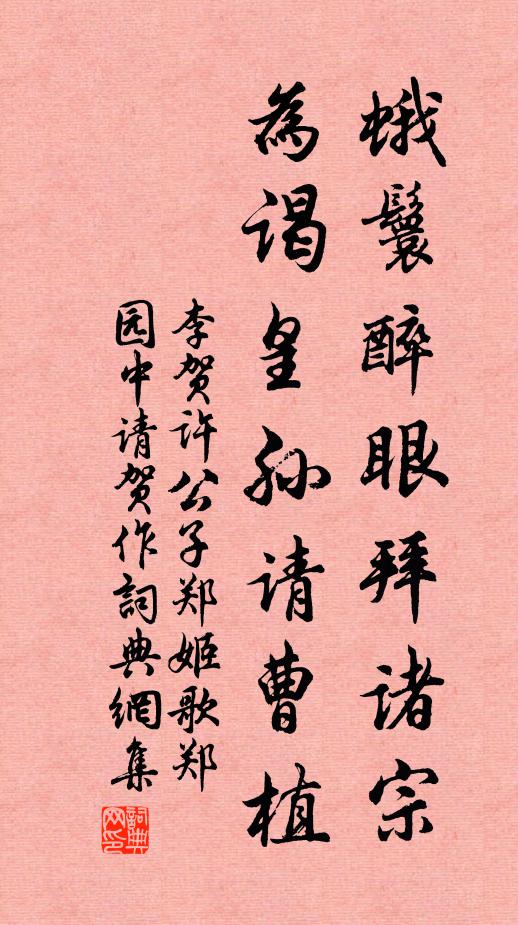 蛾鬟醉眼拜诸宗
為谒皇孙请曹植
李贺许公子郑姬歌郑
园中请贺作詞典網集
詞典网印